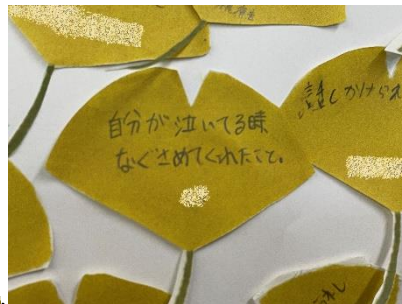 自分が泣いてる時
なぐさめてくれたこと。
話しかけられ